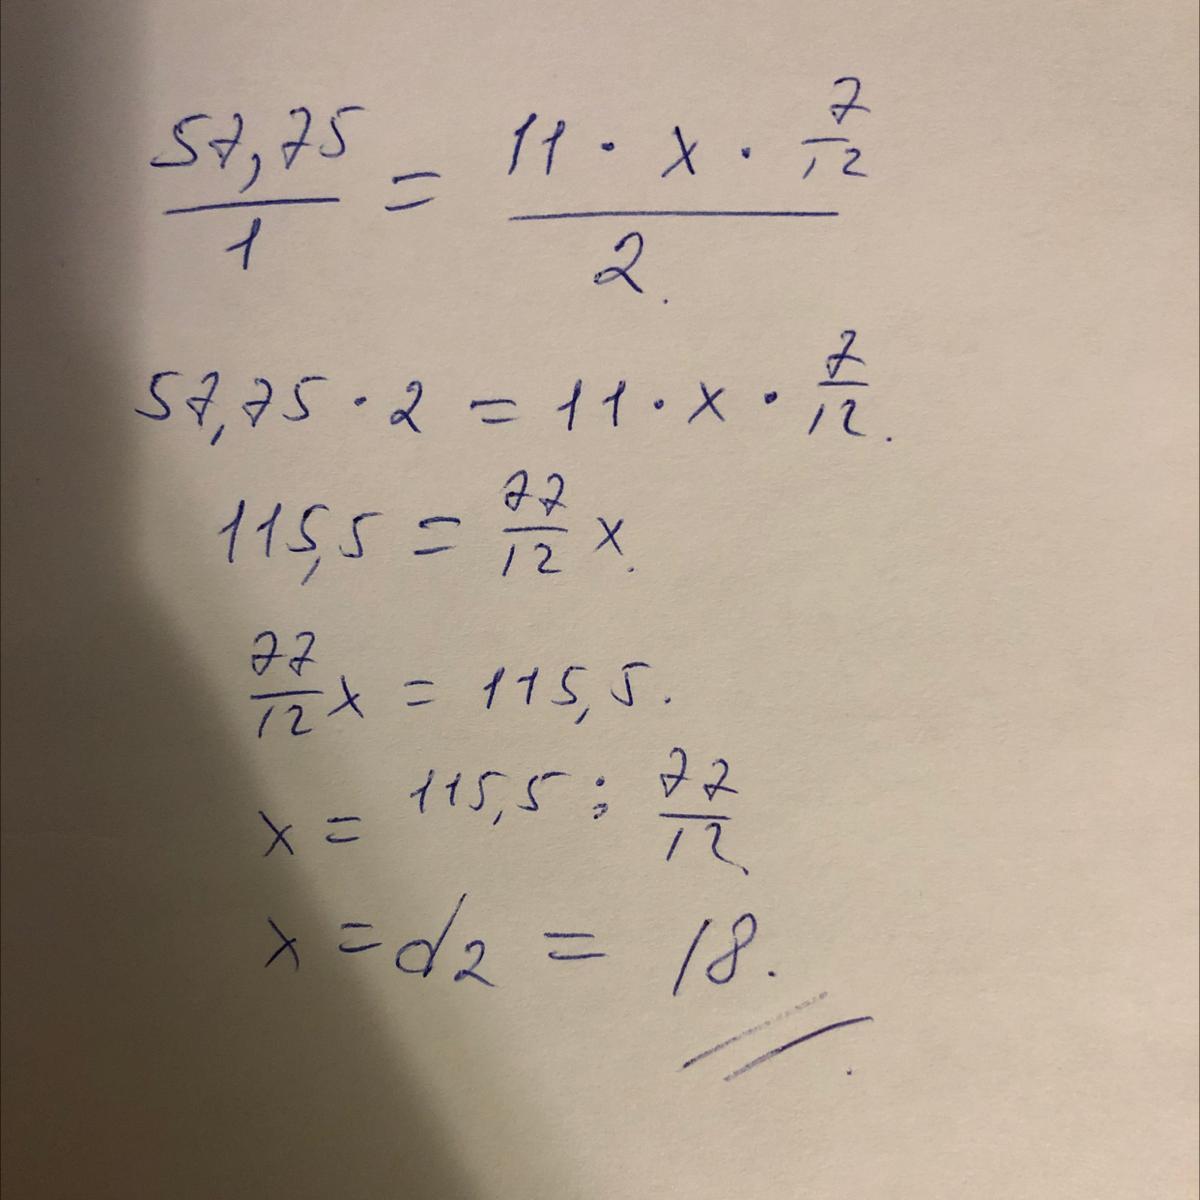 57,75/1 = (11 · x · 7/12)/2.
57,75 · 2 = 11 · x · 7/12.
115,5 = 77/12 x.
77/12 x = 115,5.
x = 115,5 : 77/12
x = d2 = 18.